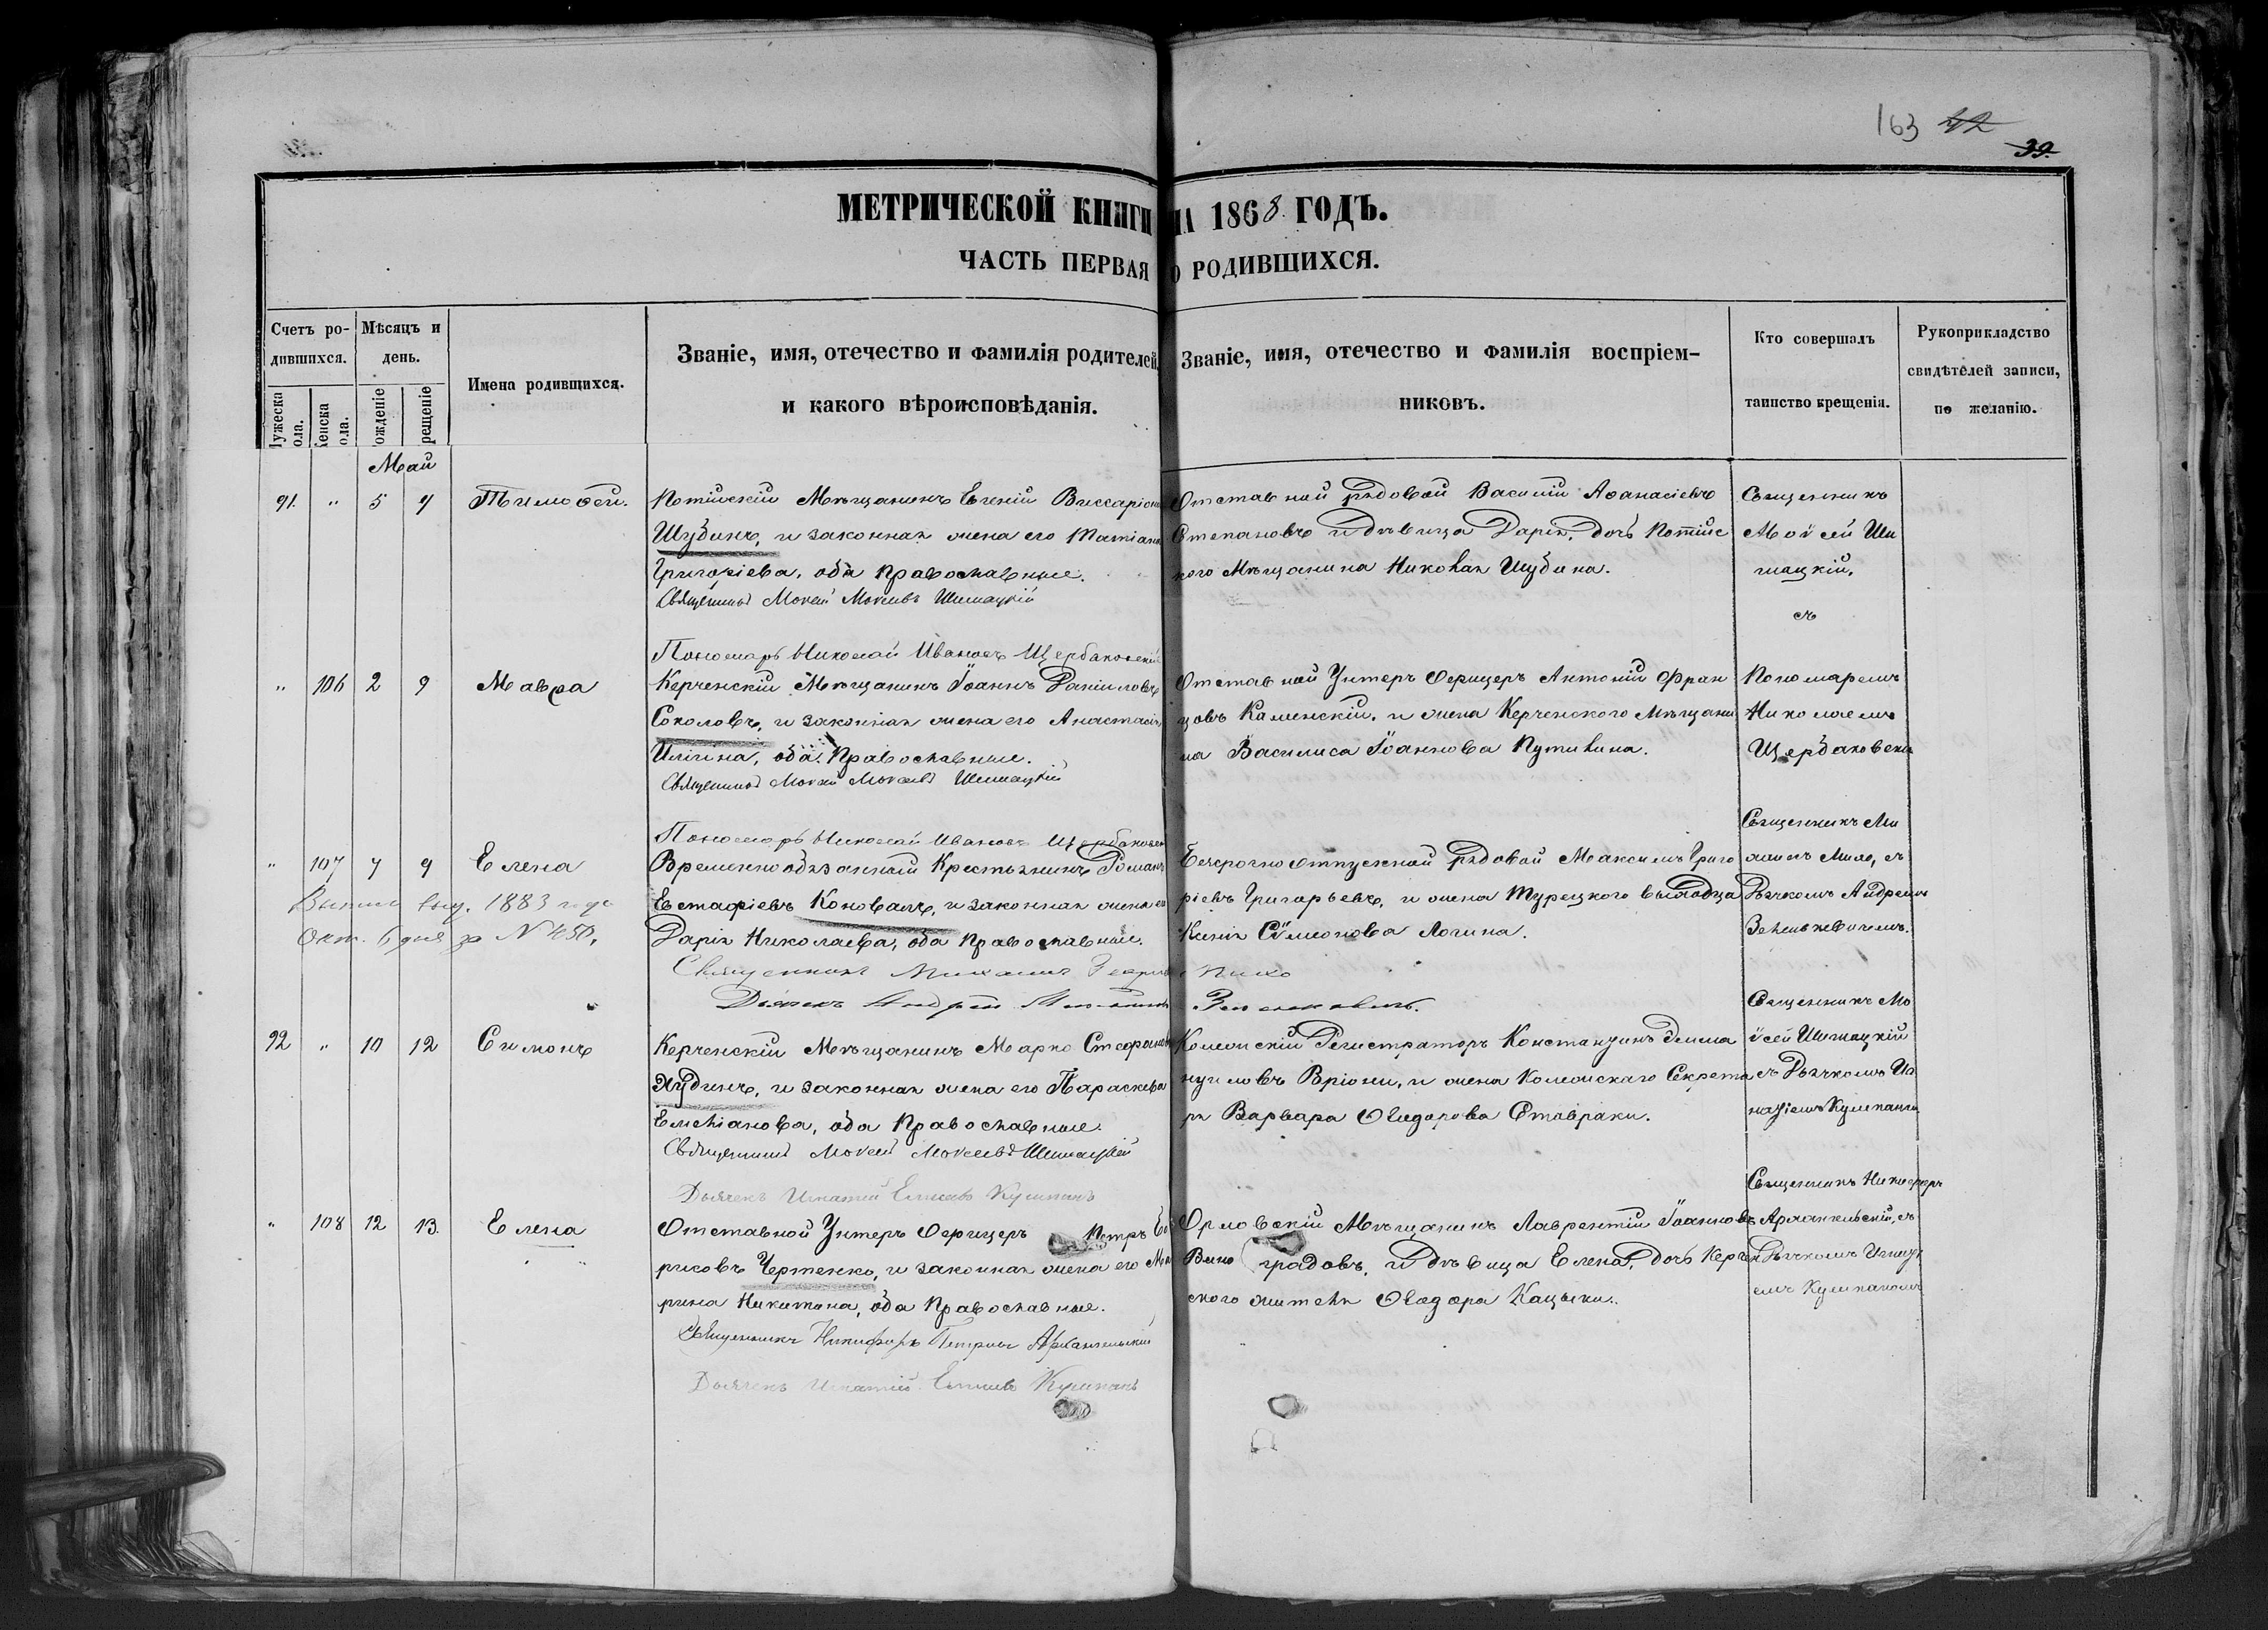 163 42
39.
МЕТРИЧЕСКОЙ КНИГИ НА 1868 ГОДЪ.
ЧАСТЬ ПЕРВАЯ О РОДИВШИХСЯ.
Счетъ ро-
дившихся.
Мужеска
пола.
Женска
пола.
Мѣсяцъ и
день.
рожденіе
крещеніе
Имена родивщихся.
Званіе, имя, отечество и фамилія родителей,
и какого вѣроисповѣданія.
Званіе, имя, отечество и фамилія воспріем-
никовъ.
Кто совершалъ
таинство крещенія.
Рукоприкладство
свидѣтелей записи,
по желанію.
Май
91. " 5 7 Тимоѳей.
Потійскій Мѣщанинъ Евгеній Виссаріоно
Шубинъ, и законная жена его Татіана
Григоріева, оба православные.
Священникъ Мокей Мокеевъ Шишацкій
Пономарь Николай Ивановъ Щербаковскій
Отставной рядовой Василій Аѳанасіевъ
Степановъ и дѣвица Дарія, дочь Потійс
кого Мѣщанина Николая Шубина.
Священникъ
Моѵсей Ши
шацкій,
съ
" 106 2 9 Мавра
Керченскій Мѣщанинъ Іоаннъ Даніиловъ
Соколовъ, и законная жена его Анастасія
Иліина, оба Православные.
Священникъ Мокей Мокеевъ Шишацкій
Пономарь Николай Ивановъ Щербаковск
Отставной Унтеръ Офицеръ Антоній Фран
цовъ Каменскій, и жена Керченского Мѣщани
на Василиса Іоаннова Путилина.
Пономаремъ
Николаемъ
Щербаковски
" 107 7 9 Елена
Выпись выд. 1883 года
Окт. 6 дня за №450.
Временнообязанный Крестьянинъ Романъ
Евстафіевъ Коновалъ, и законная жена ег
Дарія Николаева, оба православные.
Священникъ Михаилъ Георгіевъ Мико
Дьячекъ Андрей Зеленкевичъ.
Безсрочноотпускной рядовой Максимъ Григо
ріевъ Григорьевъ, и жена Турецкого выходца
Ксенія Сѵмеонова Логина.
Священникъ Ми
хаилъ Мико, съ
Дьячкомъ Андреемъ
Зеленкевичемъ.
92 " 10 12 Симонъ
Керченскій Мѣщанинъ Марко Стефановъ
Худинъ, и законная жена его Параскева
Емеліанова, оба Православные.
Священникъ Мокей Мокеевъ Шишацкій
Дьячекъ Игнатій Кушпанъ
Колежскій Регистраторъ Константинъ Эмма
нуиловъ Вріони, и жена Колежскаго Секрета
ря Варвара Ѳеодорова Ставраки.
Священникъ Мо
ѵсей Шишацкій
съ Дьячкомъ Иг
натіемъ Кушпаном
" 108 12 13. Елена
Отставной Унтеръ Офицеръ Петръ Бо
рисовъ Чертенко, и законная жена его Ма
рина Никитина, оба Православные.
Священникъ Никифоръ Петровъ Архангельскій
Дьячекъ Игнатій Кушпанъ
Орловскій Мѣщанинъ Лаврентій Іоанновъ
Виноградовъ, и дѣвица Елена, дочь Керчен
ского жителя Ѳеодора Кацыки.
Священникъ Никифоръ
Архангельскій, съ
Дьячкомъ Игнаті
емъ Кушпаномъ